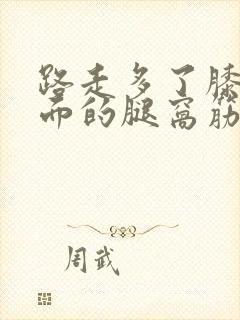 路走多了膝
而的腿窝筋
周武